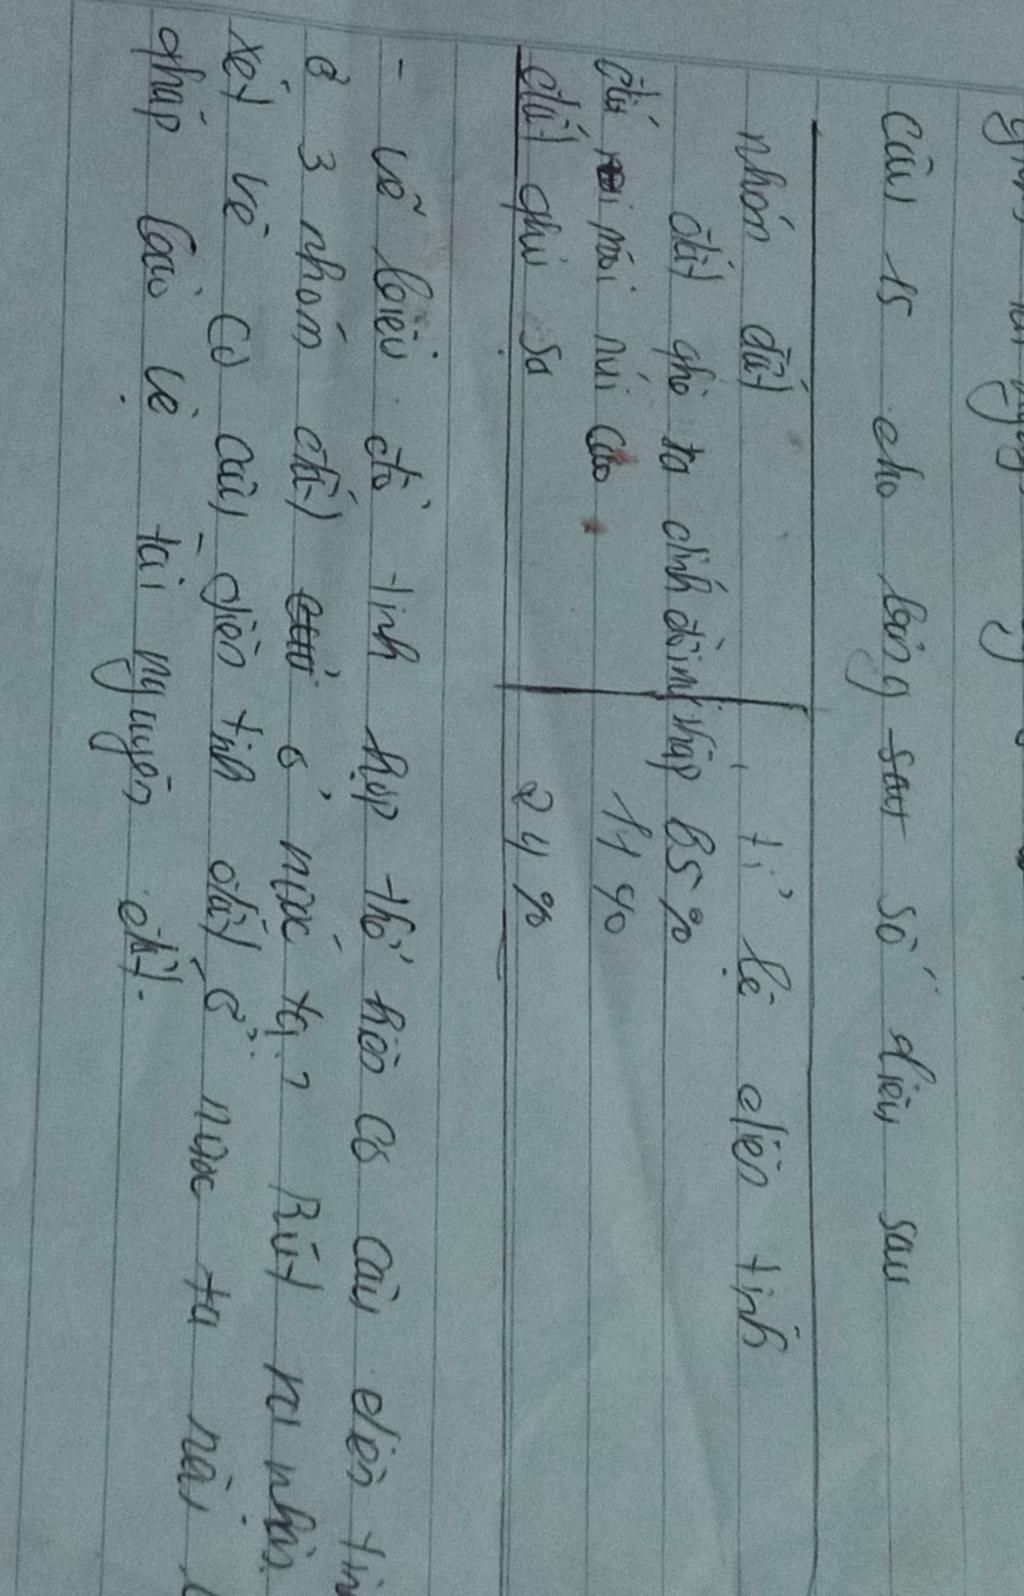 Câu 15 cho bảng số diệu sau
nhóm đất tỉ lệ diện tính
đất phe ra đinh đồi núi thấp 65 %
đất mùi núi cao 11 %
đất phù sa 24 %
- vẽ biểu đồ tính hợp thể hiện cơ cấu diện tín
ở 3 nhóm đất ở nước ta? Rút ra nhận
xét về cơ cấu diện tính đất ở nước ta nêu
pháp bảo vệ tài nguyên đất.